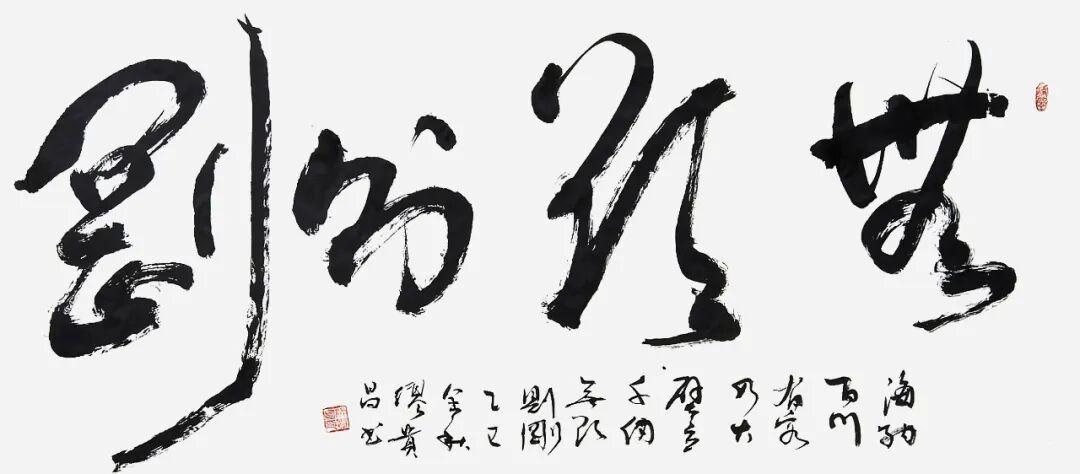 無欲則剛
海納
百川
有容
乃大
壁立
千仞
無欲
則剛
乙巳
金秋
繆貴
昌书